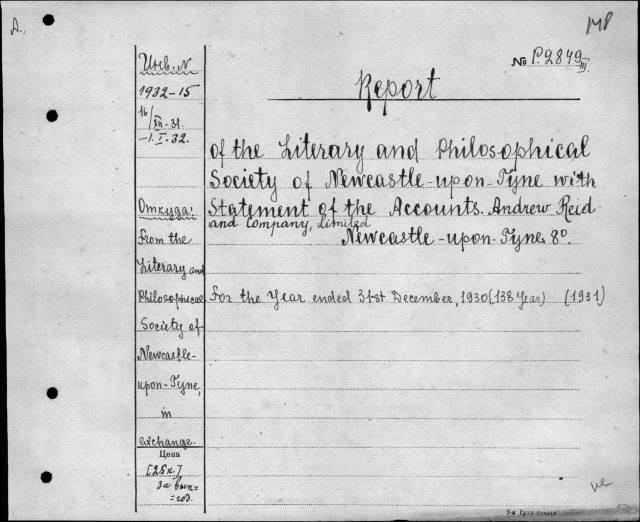 A.
тр
№ P.2849/III
Report
of the Literary and Philosophical
Society of Newcastle-upon-Tyne with
Statement of the Accounts. Andrew Reid
and Company, Limited
Newcastle-upon-Tyne. 8°.
For the Year ended 31st December, 1930 (138 Year) (1931)
Инв. №
1932-15
16/XII-31.
-1.I.32.
Откуда:
From the
Literary and
Philosophical
Society of
Newcastle-
upon-Tyne,
in
exchange.
Цена
[25к.]
За вып=
=год.